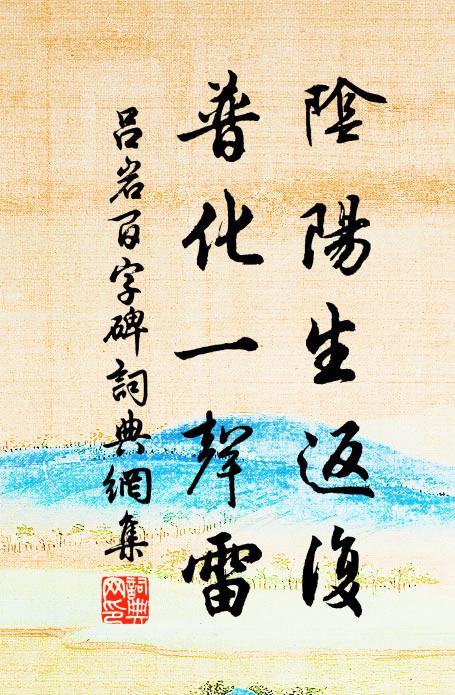 陰陽生返復
普化一聲雷
呂岩百字碑詞典網集